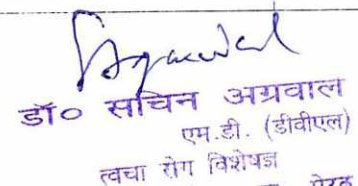 Sagarwal
डॉ० सचिन अग्रवाल
एम.डी. (डीवीएल)
त्वचा रोग विशेषज्ञ
मेरठ